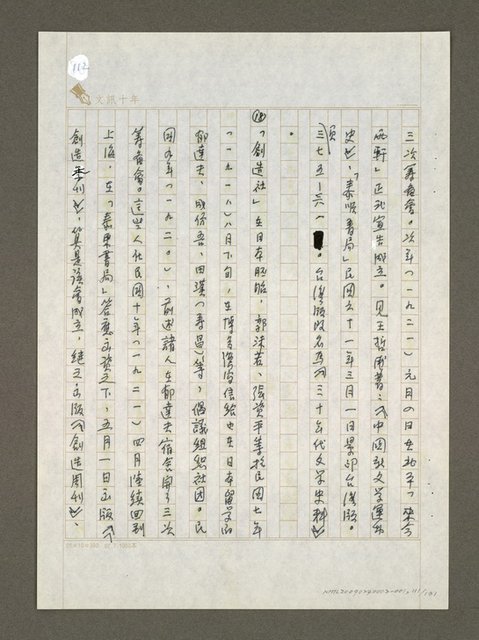 112
文訊十年
三次籌備會。次年(一九二一)元月四日在北平「來今
雨軒」正式宣告成立。見王哲甫著:《中國新文學運動
史》,「泰順書局」民國六十一年三月一日景印台灣版。
頁三七五—六一 。台灣版改名為《三十年代文學史料》
。
「創造社」在日本胚胎,郭沫若、張資平等於民國七年
(一九一八)八月下旬,在博多灣海信給也在日本留學的
郁達夫、成仿吾、田漢(壽昌)等,倡議組織社團。民
國九年(一九二〇),前述諸人在郁達夫宿舍開了三次
籌備會。這些人在民國十年(一九二一)四月陸續回到
上海,在「泰東書局」答應出資之下,五月一日出版《
創造季刊》,算是該會成立,繼之出版《創造周刊》、
NMTL20090240002-001, 111/181